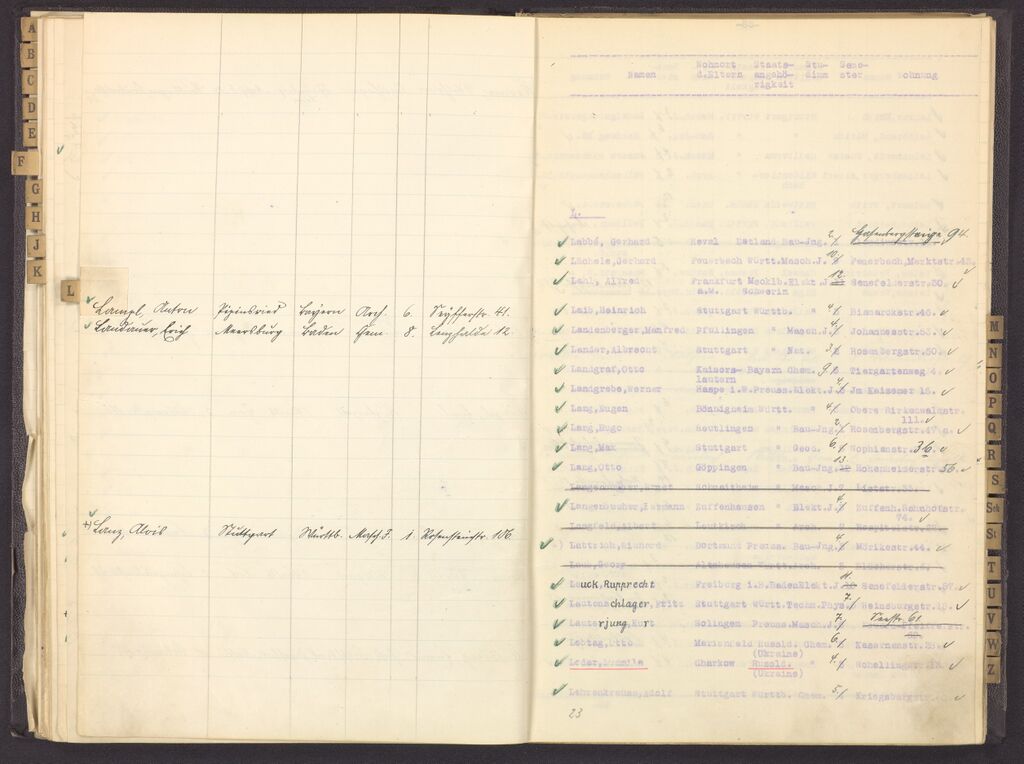 A
B
C
D
E
F
G
H
J
K
L
Lampl, Anton Pipinsried Bayern Arch. 6. Seyfferstr. 41.
Landauer, Erich Meersburg Baden Chem. 8. Lenzhalde 12.
Lanz, Alois Stuttgart Württb. Masch.J. 1 Rosensteinstr. 106.
Wohnort Staats- Stu- Seme-
Namen d.Eltern angehö- dium ster Wohnung
rigkeit
L.
Labbé, Gerhard Reval Estland Bau-Jng. 2. Hasenbergsteige 94.
Lächele, Gerhard Feuerbach Württ. Masch.J. Feuerbach, Marktstr.
Lahl, Alfred Frankfurt Mecklb. Elekt.J. 12. Senefelderstr. 30.
a.M. Schwerin
Laib, Heinrich Stuttgart Württb. " 4. Bismarckstr. 46.
Landenberger, Manfred Pfullingen " Masch.J. 4. Johannesstr. 53.
Lander, Albrecht Stuttgart " Nat. 3. Rosenbergstr. 50.
Landgraf, Otto Kaisers- Bayern Chem. 9. Tiergartenweg 4.
lautern
Landgrebe, Werner Haspe i.W. Preuss. Elekt.J. Jm Kaisemer 15.
Lang, Eugen Bönnigheim Württ. " 4. Obere Birkenwaldstr.
111.
Lang, Hugo Reutlingen " Bau-Jng. 2. Rosenbergstr. 47
Lang, Max Stuttgart " Geod. 6. Sophienstr. 36.
Lang, Otto Göppingen " Bau-Jng. 13. Hohenheimerstr. 56.
Langenbucher, Ernst Schnaitheim " Masch.J. 7 Liststr.
Langenbucher, Hermann Zuffenhausen " Elekt.J. 4. Zuffenh. Bahnhofstr.
74.
Langfeld, Albert
Lattrich, Richard Dortmund Preuss. Bau-Jng. 4. Mörikestr. 44.
Laub, Georg Württ. Arch.
Lauck, Rupprecht Freiburg i.B. Baden Elekt.J. 11. Senefelderstr. 57.
Lautenschlager, Fritz Stuttgart Württ. Techn.Phys. 7. Weinsburgstr.
Lauterjung, Kurt Solingen Preuss. Masch.J. 7. Seestr. 61.
Lebtag, Otto Marienfeld Russld. Chem. 6. Kasernenstr.
(Ukraine)
Leder, Ludmila Charkow Russld. " 4. Schellingstr.
(Ukraine)
Lehrenkrauss, Adolf Stuttgart Württb. Chem. 5. Kriegsbergstr.
23
M
N
O
P
Q
R
S
Sch
St
T
U
V
W
Z